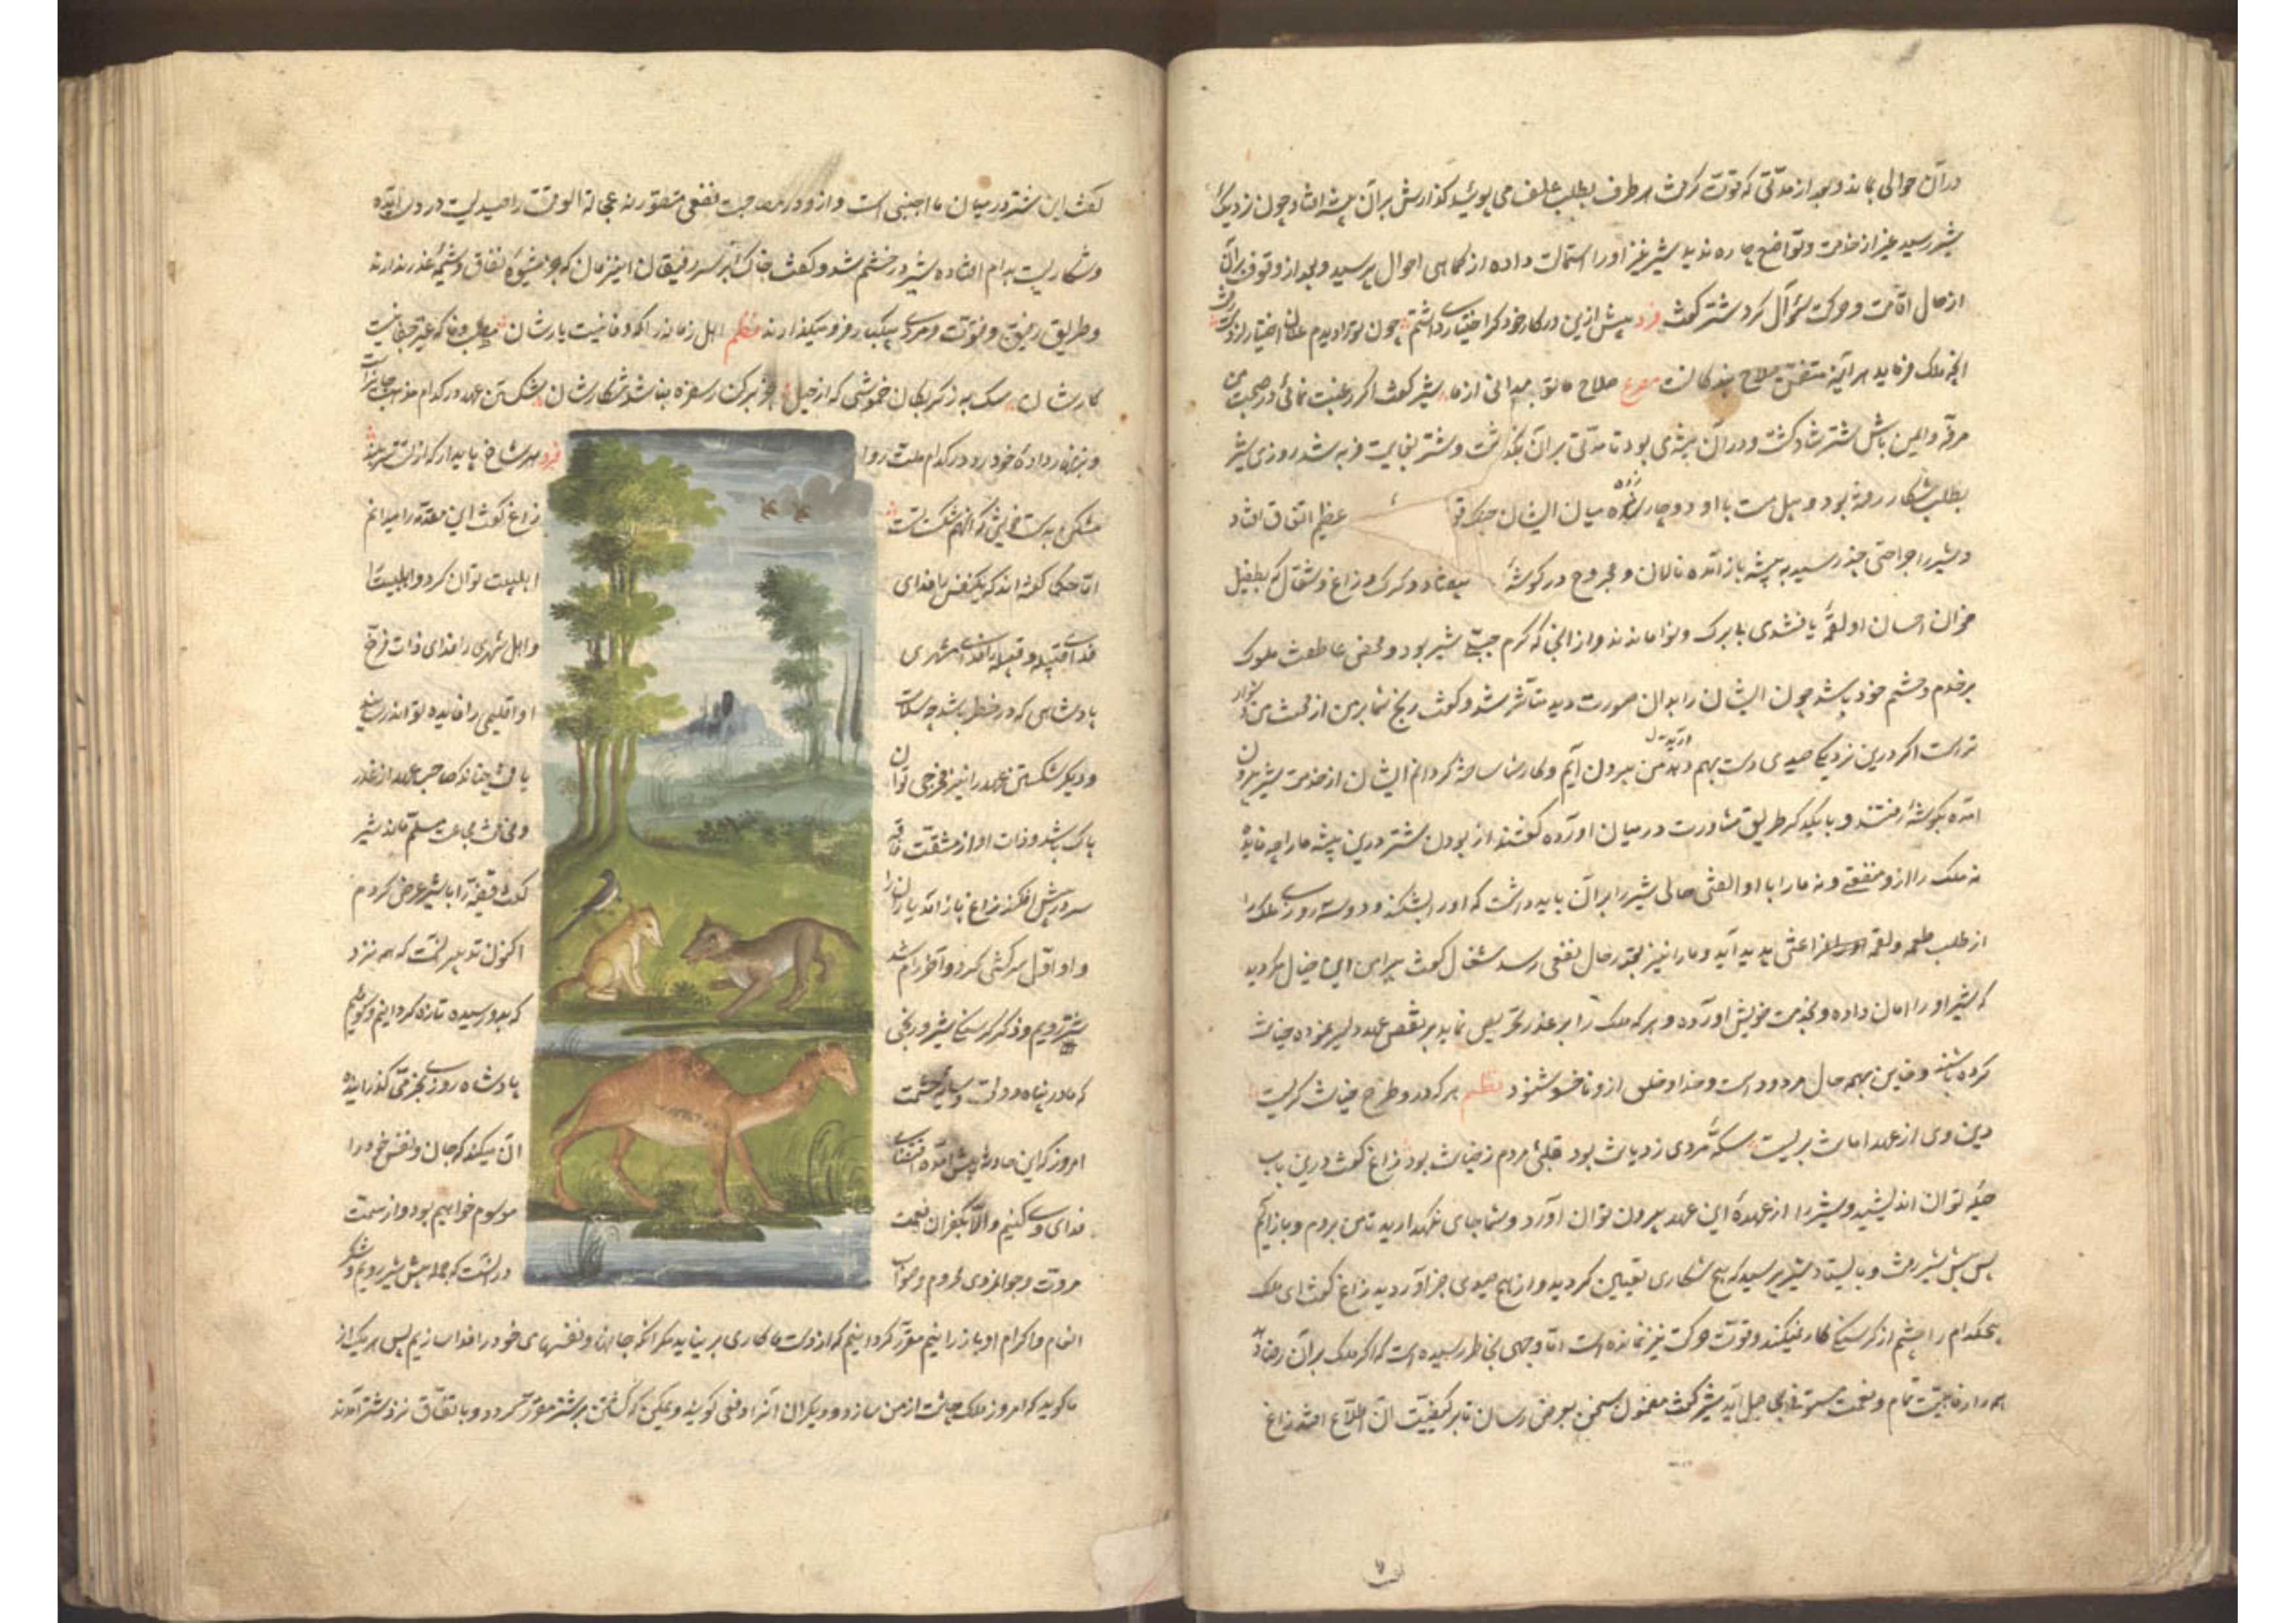 در آن حوالی بماند و بعد از مدتی که قوت گرفت هر طرف بطلب علف می پوئید گذارش بر آن بیشه افتاد چون نزدیک
شیر رسید غیر از خدمت و تواضع چاره ندید شیر نیز او را استمالت داده از کماهی احوال پرسید و بعد از وقوف بر آن
از حال اقامت و حرکت سؤال کرد شتر گفت فرد پیش ازین در کار خود گر اختیاری داشتم چون ترا دیدم عنان اختیار از دست رفت
انچه ملک فرماید هر آینه متضمن صلاح بندگانست مصرع صلاح ما تو به میدانی از ما شیر گفت اگر رغبت نمائی در صحبت من
مرفه و ایمن باش شتر شاد گشت و در آن بیشه می بود تا مدتی بر آن بگذشت و شتر بغایت فربه شد روزی شیر
بطلب شکار رفته بود و پیل مست با او دوچار شده میان ایشان جنگ عظیم اتفاق افتاد
و شیر را جراحتی چند رسید به بیشه باز آمده نالان و مجروح در گوشه بیفتاد و گرگ و زاغ و شغال که بطفیل
خوان احسان او لقمه یافتندی بی برگ و نوا ماندند و از آنجا که کرم جبلی شیر بود و محض عاطفت ملوک
بر خدم و حشم خود باشد چون ایشان را بدان صورت دید متأثر شد و گفت رنج شما بر من از محنت من دشوار
تر است اگر درین نزدیکی صیدی دست بهم دهد من بیرون آیم و کار شما ساخته گردانم ایشان از خدمت شیر بیرون
آمده بگوشه رفتند و با یکدیگر طریق مشاورت در میان آورده گفتند از بودن شتر درین بیشه ما را چه فایده
نه ملک را از و منفعتی و نه ما را با او الفتی حالی شیر را بر آن باید داشت که او را بشکند و دو سه روزی ملک را
از طلب طعمه و لقمه فراغتی پدید آید و ما را نیز بقدر حال نفعی رسد شغال گفت پیرامن این خیال مگردید
که شیر او را امان داده و بخدمت خویش آورده و هر که ملک را بر غدر تحریص نماید بر نقض عهد دلیر نموده خیانت
کرده باشد و خاین بهمه حال مردود است و خدا و خلق ازو ناخوشنود نظم هر که درو طرح خیانت گریست
دین وی از عهد امانت بریست سکه مردی ز دیانت بود قلبی مردم ز خیانت بود زاغ گفت درین باب
حیله توان اندیشید و شیر را از عهده این عهد بیرون توان آورد و شما جای نگهدارید تا من بروم و باز آیم
پس پیش شیر رفت و بایستاد شیر پرسید که هیچ شکاری تعیین کردید و از هیچ صیدی خبر آوردید زاغ گفت ای ملک
هیچکدام را چشم از گرسنگی کار نمیکند و قوت حرکت نیز نمانده است اما وجهی بخاطر رسیده است که اگر ملک بر آن رضا دهد
همه را رفاهیت تمام و نعمت مستوفی بحاصل آید شیر گفت مضمون سخن بعرض رسان تا بر کیفیت آن اطلاع افتد زاغ
گفت این شتر در میان ما اجنبی است و از و در مصاحبت نفعی متصور نه عجالة الوقت را صیدیست در دست آمده
و شکاریست بدام افتاده شیر در خشم شد و گفت خاک بر سر رفیقان این زمان که جز شیوه نفاق و شیمه غدر ندارند
و طریق رفق و فتوت و مردمی بیکبار فرو میگذارند نظم اهل زمانه را که وفا نیست یارشان مطلب وفا که غیر جفا نیست
کارشان سگ به ز گربکان خموشی که از حیل جز برکت رسفره نباشد شکارشان شکستن عهد در کدام مذهب جایز است
و بزنهار داده خود بد در کدام ملت روا فرد هر شاخ پایدار که از تست سربلند
مشکن بدست خویش که آنهم شکست تست زاغ گفت این مقدمه را میدانم
اما حکما گفته اند که یک نفس را فدای اهلبیت توان کرد و اهلبیت را
فدای قبیله و قبیله را فدای شهری و اهل شهری را فدای ذات فرخ
پادشاهی که در خطر باشد چه سلامت او اقلیمی را فایده تواند رسانید
و دیگر شکستن عهد را نیز مخرجی توان یافت چنانکه صاحب عهد از غدر
پاک باشد و ذات او از مشقت فاقه و مخافت مجاعت مسلم ماند شیر
سر در پیش افکند زاغ باز آمد یاران را گفت قضیه را با شیر عرض کردم
و او اول سرکشی کرد و آخر رام شد اکنون تدبیر آنست که همه نزد
شتر رویم و ذکر گرسنگی شیر و رنجی که بدو رسیده تازه گردانیم و گوئیم
که ما در پناه دولت و سایه حشمت پادشاه روزی بخرمی گذرانیده
امروز که این حادثه پیش آمده اقتضای آن میکند که جان و نفس خود را
فدای وی کنیم و الا بکفران نعمت موسوم خواهیم بود و از سمت
مروت و جوانمردی محروم و صواب در آنست که جمله پیش شیر رویم و شکر
انعام و اکرام او باز رانیم مقرر گردانیم که از دست ما کاری برنیاید مگر آنکه جانها و نفسهای خود را فدا سازیم پس هر یک از
ما گوید که امروز ملک چاشت از من سازد و دیگران آنرا دفعی گویند و یمکن که کشتن بر شتر مقرر گردد و باتفاق نزد شتر آمدند